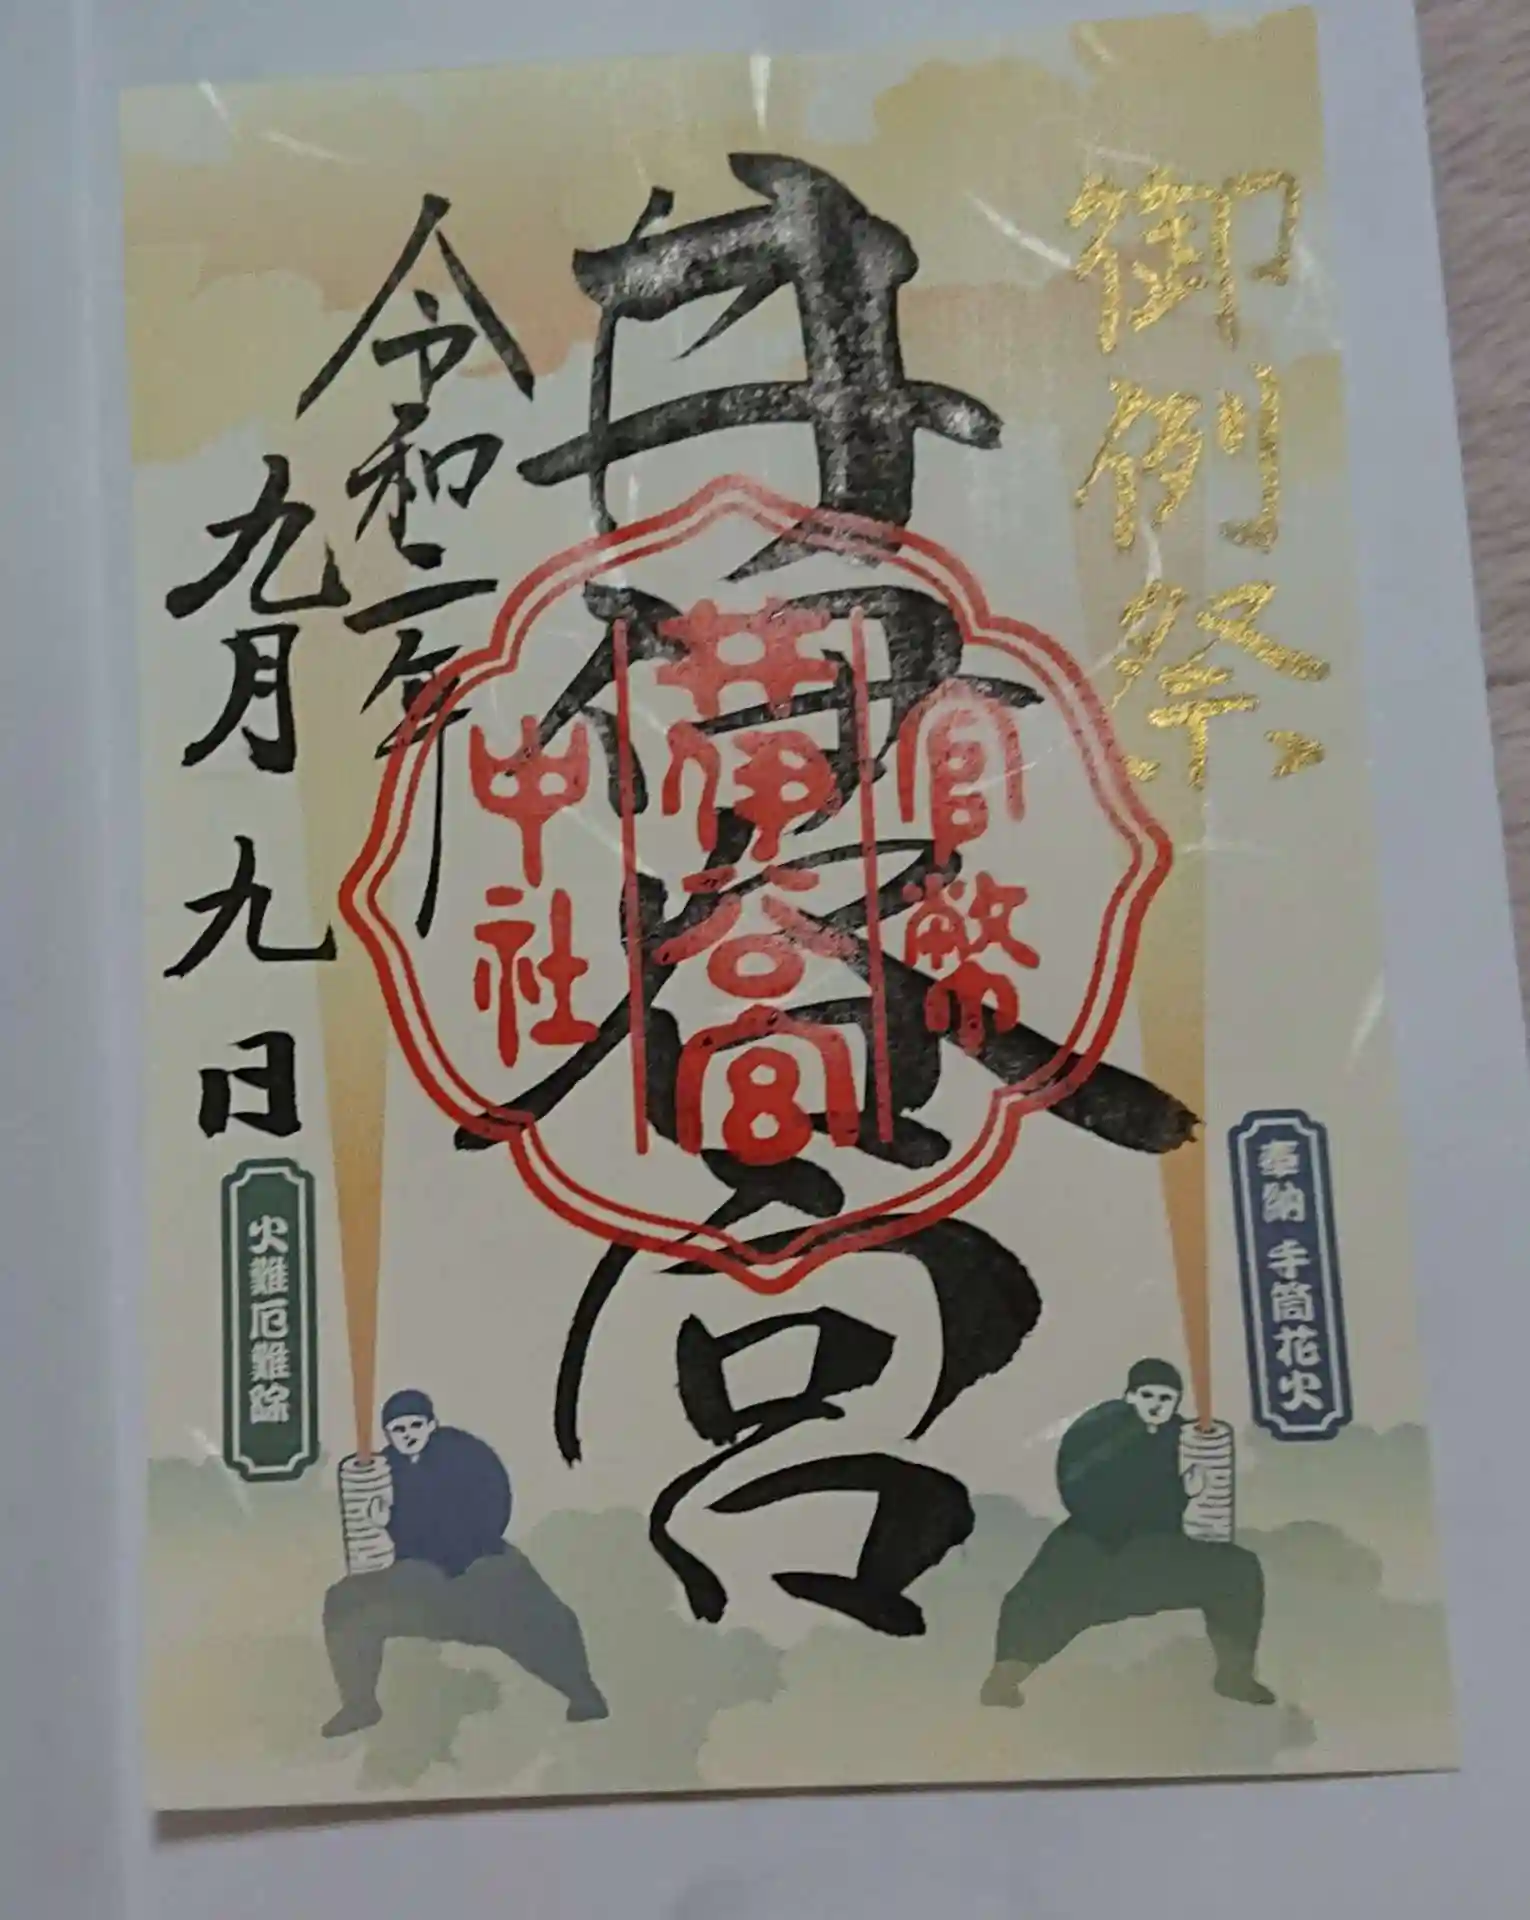 御例祭
奉納 手筒花火
井伊谷宮
官幣
井伊谷宮
中社
令和二年
九月九日
火難厄難除